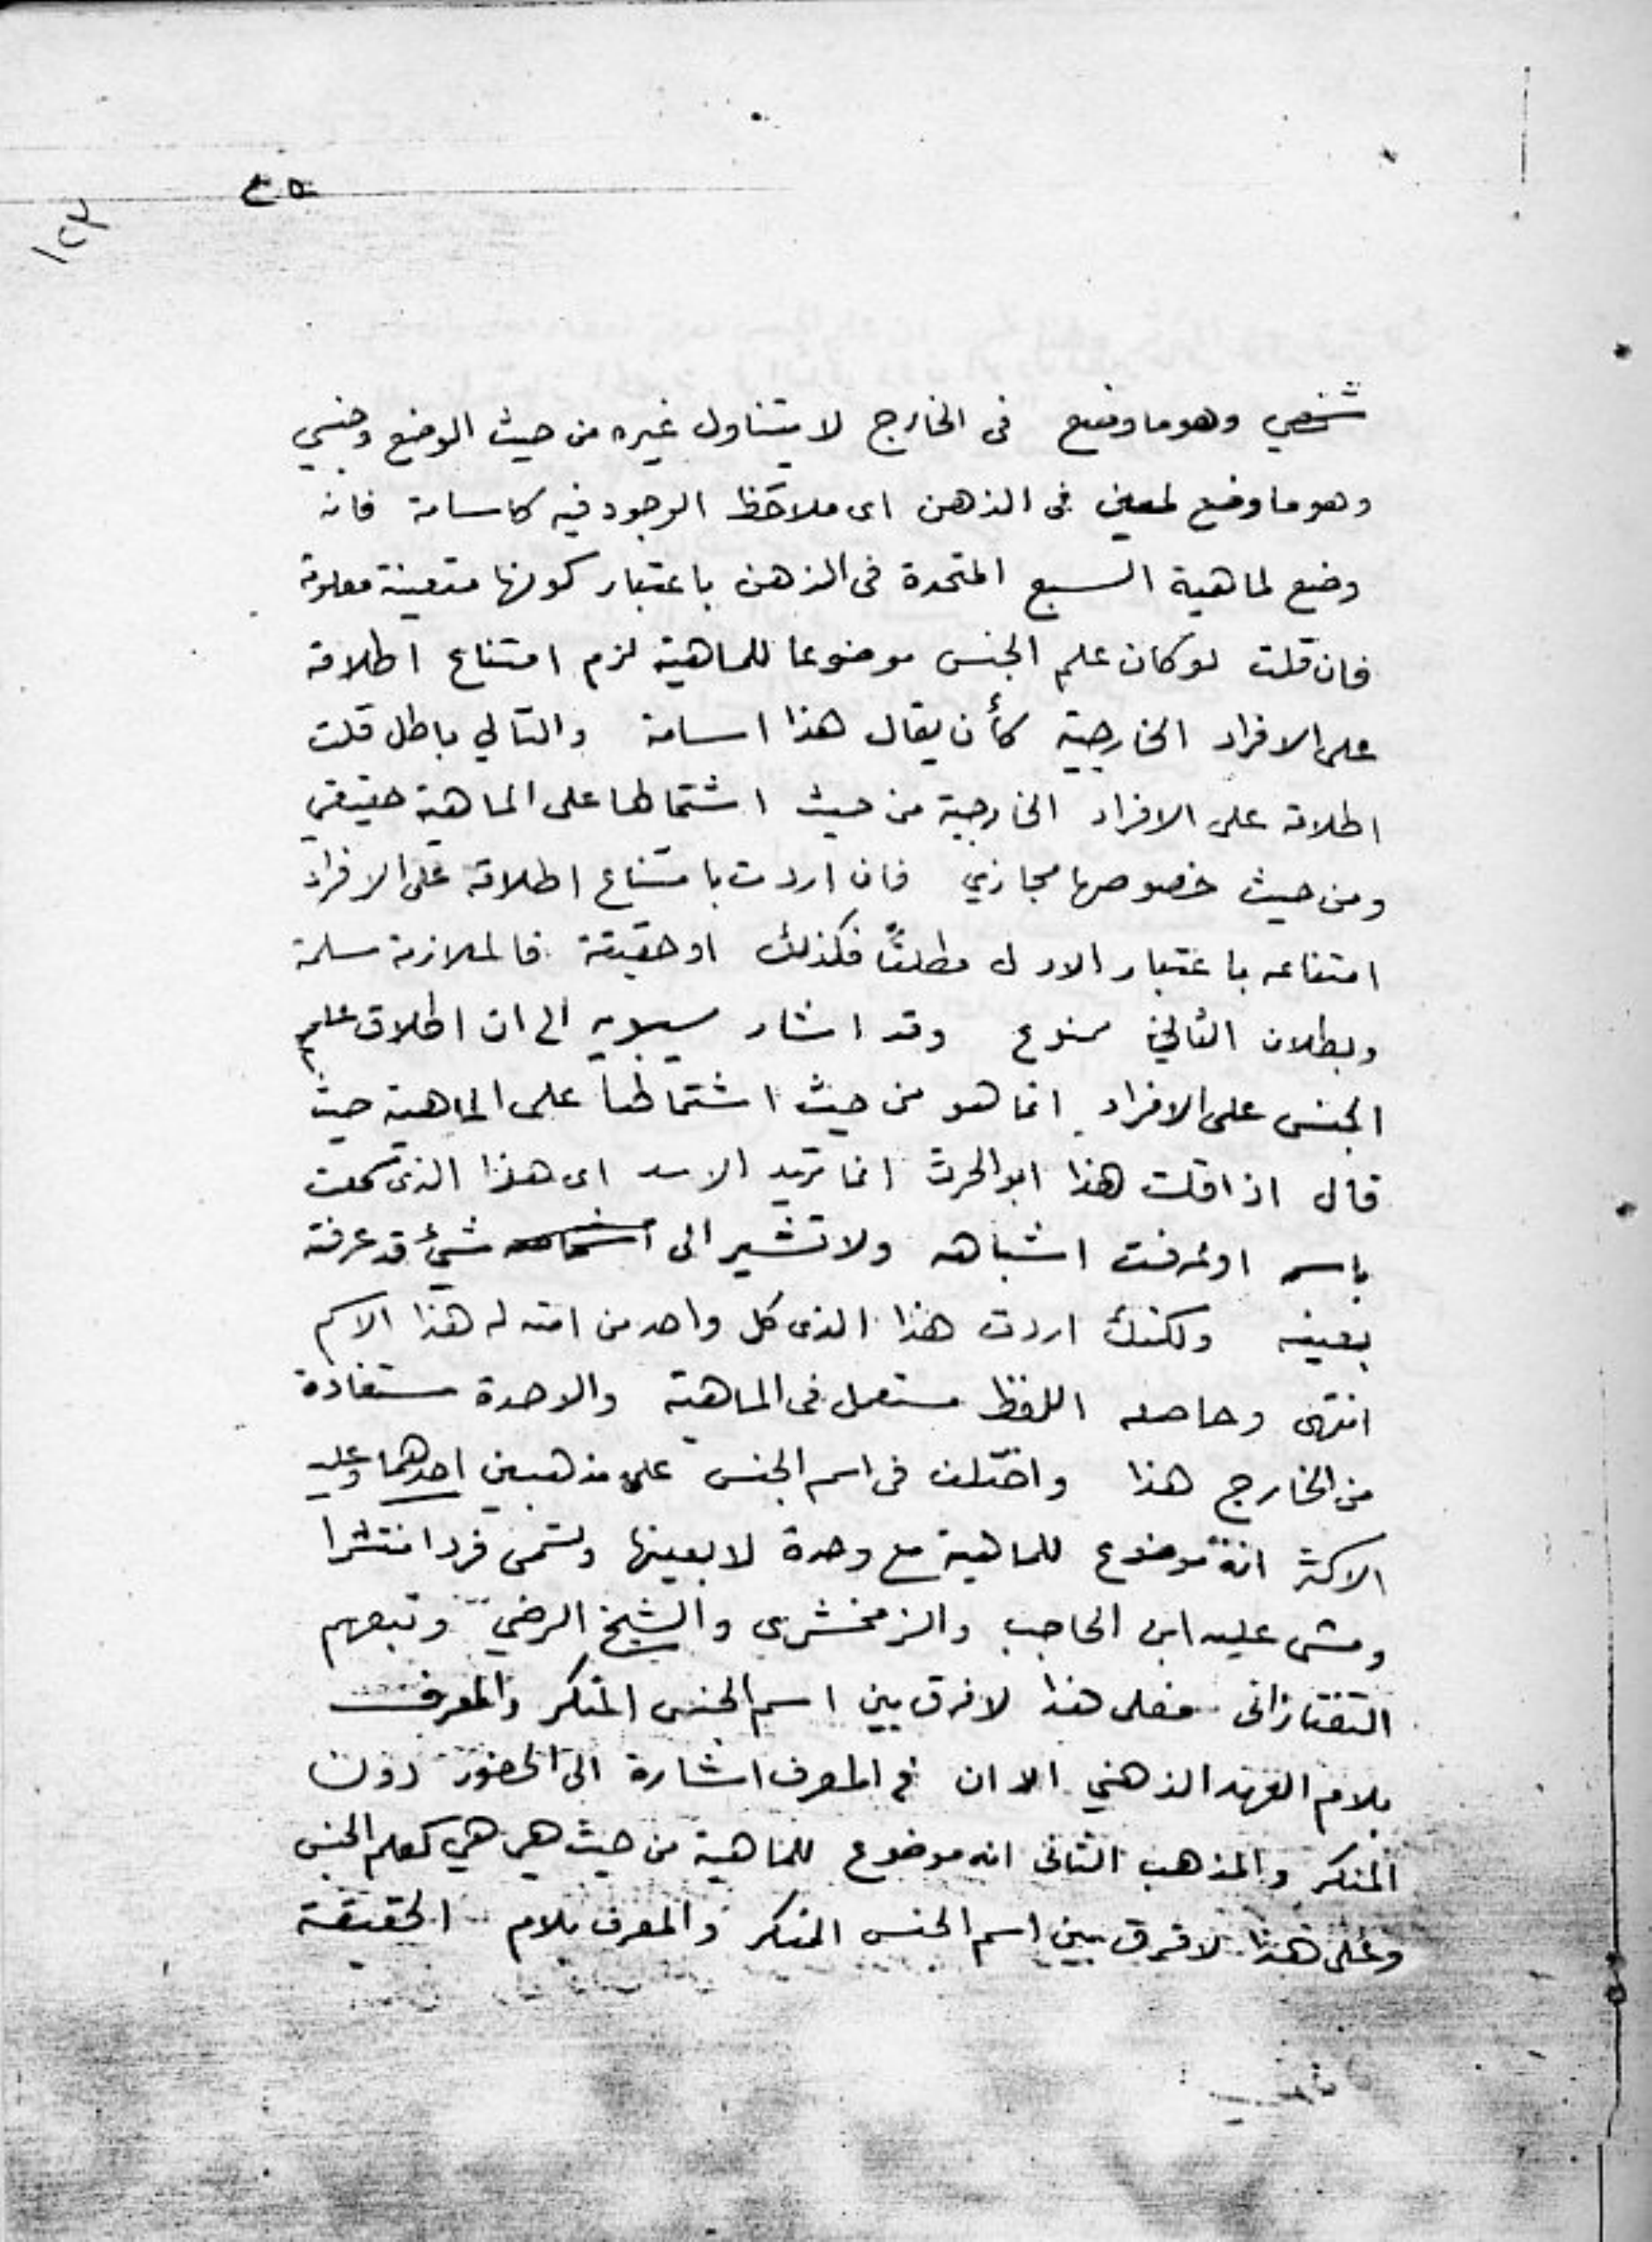 ١٢٣
شخصي وهو ما وضع فى الخارج لا يتناول غيره من حيث الوضع وجنسي
وهو ما وضع لمعين فى الذهن اى ملاحَظ الوجود فيه كاسامة فانه
وضع لماهية السبع المتحدة فى الذهن باعتبار كونها متعينة معلومة
فان قلت لو كان علم الجنس موضوعا للماهية لزم امتناع اطلاقه
على الافراد الخارجية كأن يقال هذا اسامة والتالي باطل قلت
اطلاقه على الافراد الخارجية من حيث اشتمالها على الماهية حقيقي
ومن حيث خصوصها مجازي فان اردت بامتناع اطلاقه على الافراد
امتناعه باعتبار الاول مطلقًا فكذلك او حقيقة فالملازمة مسلمة
وبطلان التالي ممنوع وقد اشار سيبويه الى ان اطلاق علم
الجنس على الافراد انما هو من حيث اشتمالها على الماهية حيث
قال اذا قلت هذا ابو الحرث انما تريد الاسد اى هذا الذى سمعت
باسمه او عرفت اشباهه ولا تشير الى شيئ قد عرفته
بعينه ولكنك اردت هذا الذى كل واحد من امته له هذا الاسم
انتهى وحاصله اللفظ مستعمل فى الماهية والوحدة مستفادة
من الخارج هذا واختلف فى اسم الجنس على مذهبين احدهما وعليه
الاكثر انه موضوع للماهية مع وحدة لا بعينها ويسمى فردا منتشرا
ومشى عليه ابن الحاجب والزمخشرى والشيخ الرضي وتبعهم
التفتازانى فعلى هذا لا فرق بين اسم الجنس المنكر والمعرف
بلام العهد الذهني الا ان في المعرف اشارة الى الحضور دون
المنكر والمذهب الثانى انه موضوع للماهية من حيث هى هي كعلم الجنس
وعلى هذا لا فرق بين اسم الجنس المنكر والمعرف بلام الحقيقة